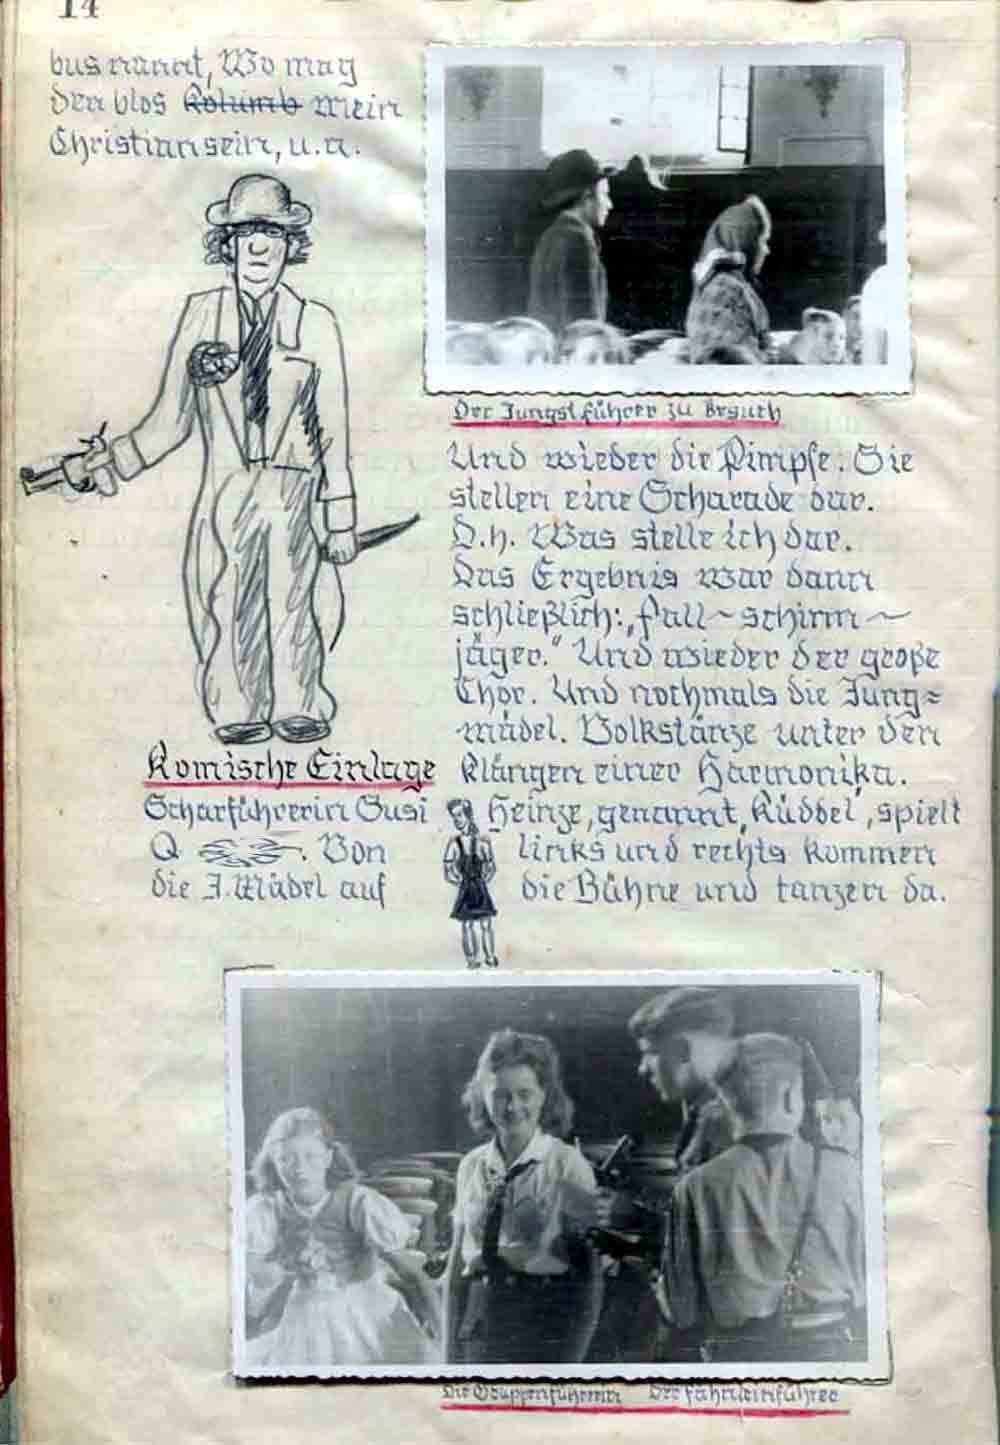 14
bus nannt, Wo mag
den blos Kolumb mein
Christian sein, u.a.
Der Jungstführer zu Besuch
Und wieder die Pimpfe. Sie
stellen eine Scharade dar.
D.h. Was stelle ich dar.
Das Ergebnis war dann
schließlich: „Fall~schirm~
jäger.“ Und wieder der große
Chor. Und nochmals die Jung=
mädel. Volkstänze unter den
Klängen einer Harmonika.
Komische Einlage
Scharführerin Susi Heinze, genannt „Küddel“, spielt
Q. Von links und rechts kommen
die J. Mädel auf die Bühne und tanzen da.
Die Gruppenführerin Der Fähnleinführer